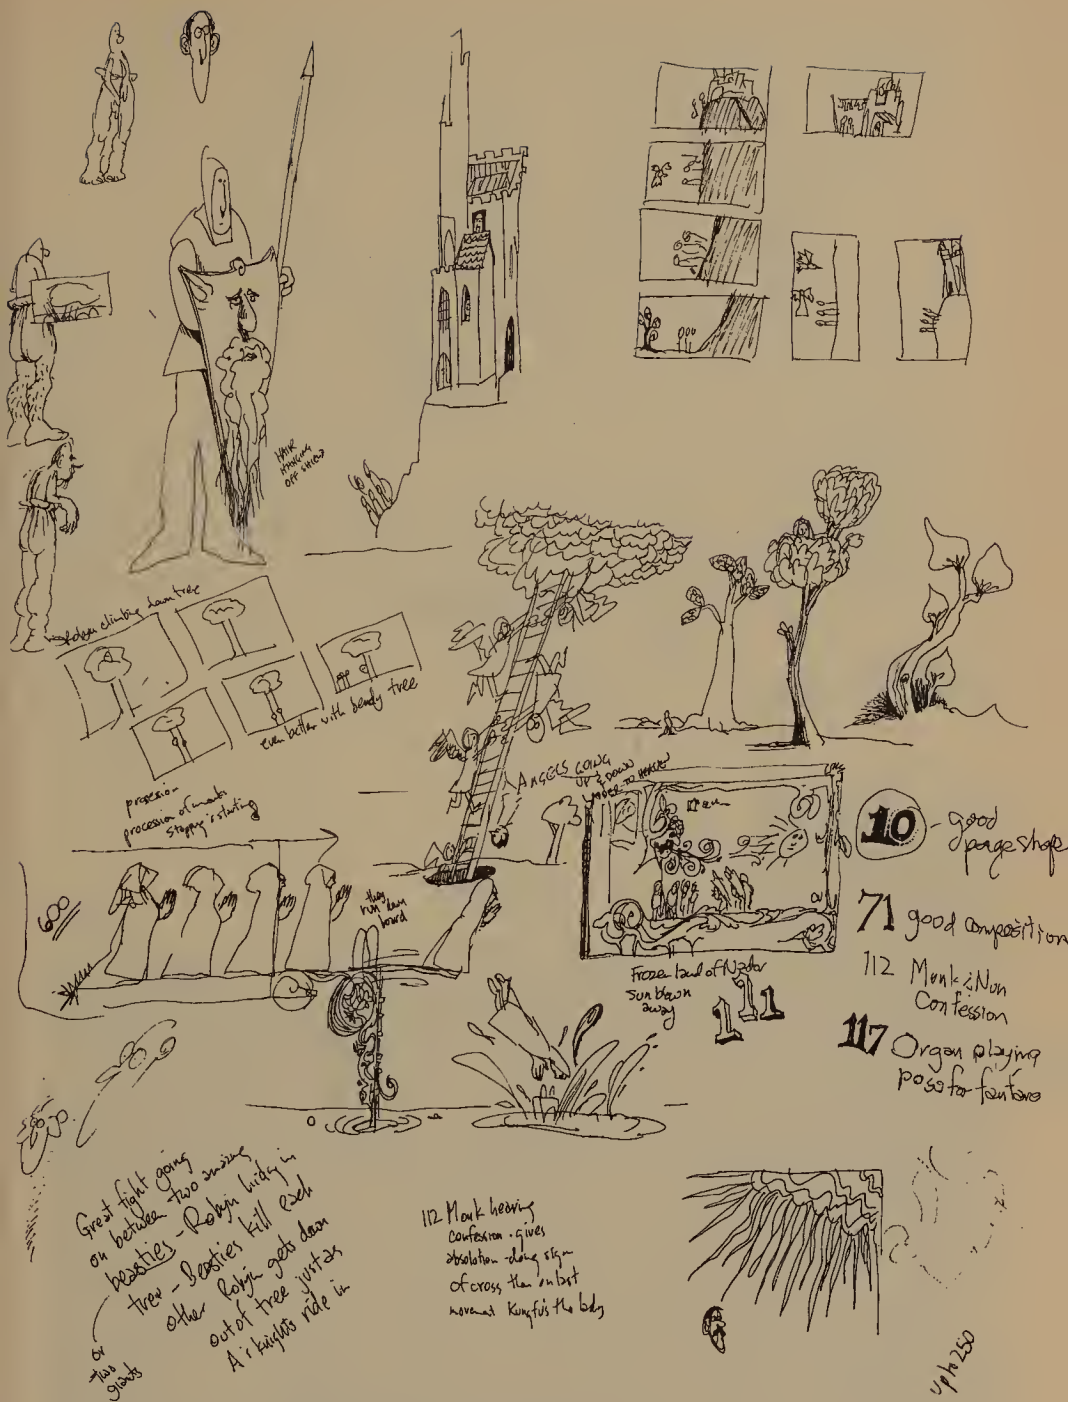 HAIR
HANGING
OFF SHIELD
Robyn climbing down tree
even better with bendy tree
procession of monks
stopping & starting
600
they
run down
board
ANGELS GOING
UP & DOWN
LADDER TO HEAVEN
10 - good
page shape
71 good composition
112 Monk & Nun
Confession
117 Organ playing
pose for fanfare
Frozen land of Nador
sun blown
away
111
Great fight going
on between two amazing
beasties - Robyn hiding in
tree - Beasties kill each
other Robyn gets down
out of tree just as
A & knights ride in
or
two
giants
112 Monk hearing
confession - gives
absolution - doing sign
of cross then on last
movement Kungfu's the lady
up to 250